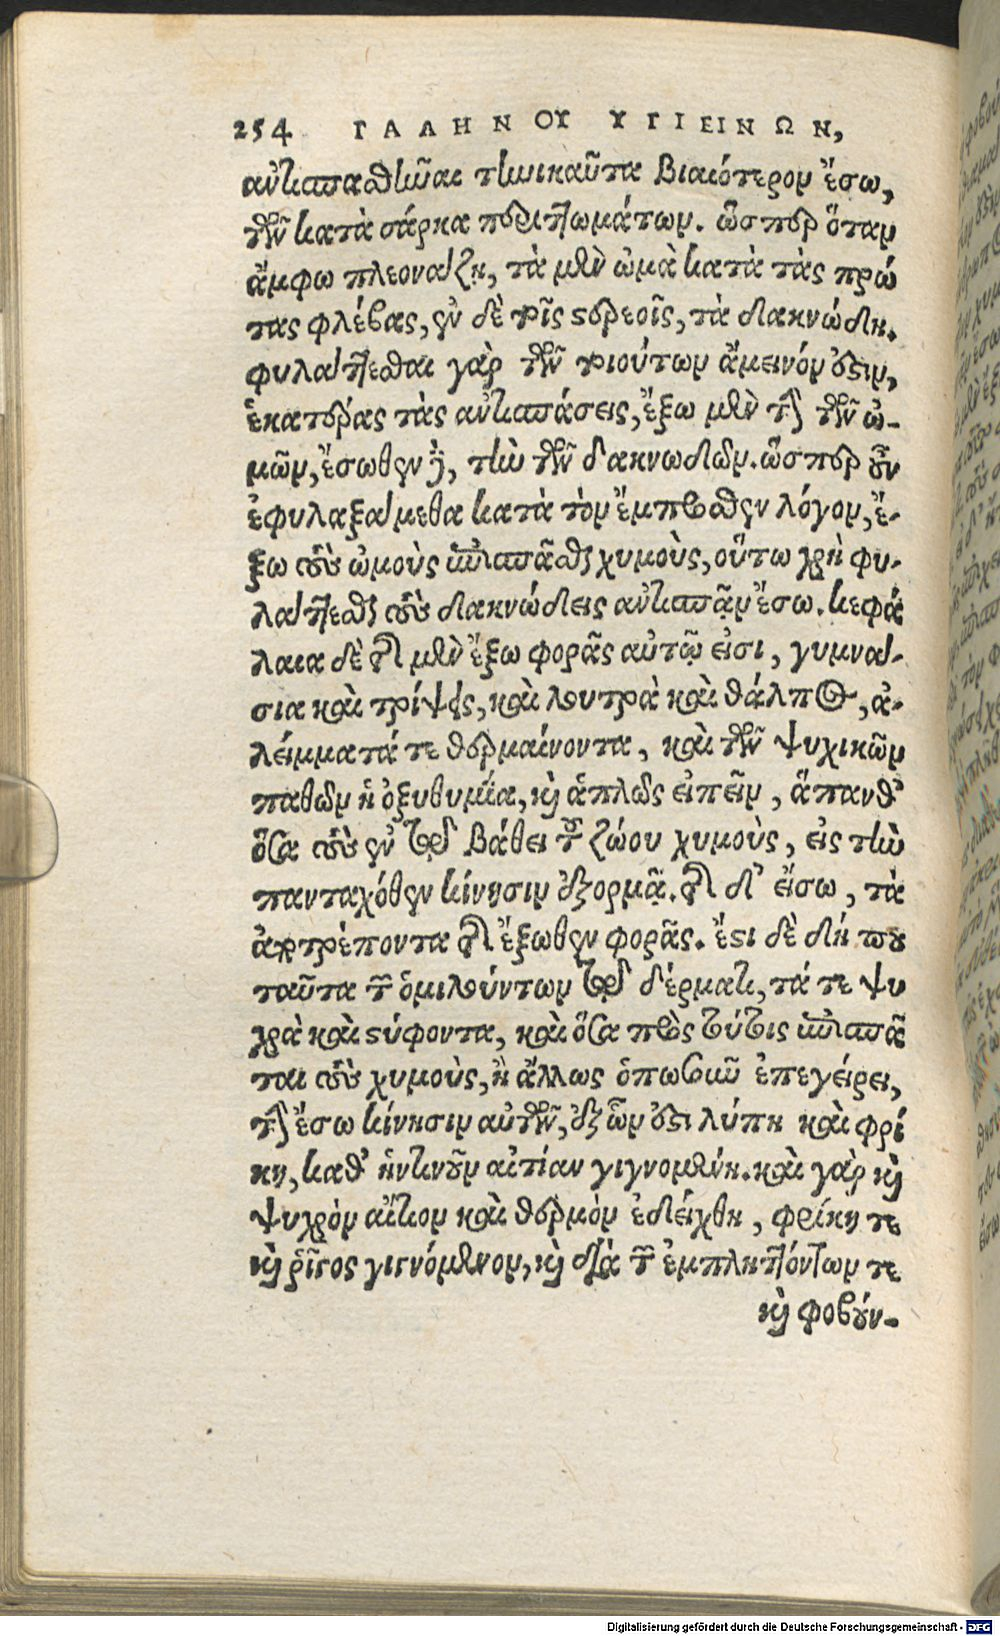 254 ΓΑΛΗΝΟΥ ΥΓΙΕΙΝΩΝ,
ἀντισπασθῆναι τηνικαῦτα βιαιότερον ἔσω,
τῶν κατὰ σάρκα περιττωμάτων. ὥσπερ ὅταν
ἄμφω πλεονάζῃ, τὰ μὲν ὠμὰ κατὰ τὰς πρώ
τας φλέβας, ἐν δὲ τοῖς στερεοῖς, τὰ δακνώδη.
φυλάττεσθαι γὰρ τῶν τοιούτων ἄμεινόν ἐστιν,
ἑκατέρας τὰς ἀντισπάσεις, ἔξω μὲν τὴν τῶν ὠ-
μῶν, ἔσωθεν δὲ, τὴν τῶν δακνωδῶν. ὥσπερ οὖν
ἐφυλαξάμεθα κατὰ τὸν ἔμπροσθεν λόγον, ἔ-
ξω τοὺς ὠμοὺς ἐπισπᾶσθαι χυμοὺς, οὕτω χρὴ φυ-
λάττεσθαι τοὺς δακνώδεις ἀντισπᾷν ἔσω. κεφά
λαια δὲ τῆς μὲν ἔξω φορᾶς αὐτῷ εἰσι, γυμνά-
σια καὶ τρίψεις, καὶ λουτρὰ καὶ θάλπος, ἀ-
λείμματά τε θερμαίνοντα, καὶ τῶν ψυχικῶν
παθῶν ἡ ὀξυθυμία, καὶ ἁπλῶς εἰπεῖν, ἅπανθ'
ὅσα τοὺς ἐν τῷ βάθει τοῦ ζώου χυμοὺς, εἰς τὴν
πανταχόθεν κίνησιν ἐξορμᾷ. τῆς δ' εἴσω, τὰ
ἀποτρέποντα τῆς ἔξωθεν φορᾶς. ἔστι δὲ δή που
ταῦτα τῶν ὁμιλούντων τῷ δέρματι, τά τε ψυ
χρὰ καὶ στύφοντα, καὶ ὅσα πρὸς τούτοις ἐπισπᾶ
ται τοὺς χυμοὺς, ἢ ἄλλως ὁπωσοῦν ἐπεγείρει,
τὴν ἔσω κίνησιν αὐτῶν, ἐξ ὧν ἐστι λύπη καὶ φρί
κη, καθ' ἡντινοῦν αἰτίαν γιγνομένη. καὶ γὰρ καὶ
ψυχρὸν αἴτιον καὶ θερμὸν ἐδείχθη, φρίκην τε
καὶ ῥῖγος γιγνόμενον, καὶ διὰ τῶν ἐμπληττόντων τε
καὶ φοβούν-
Digitalisierung gefördert durch die Deutsche Forschungsgemeinschaft - DFG